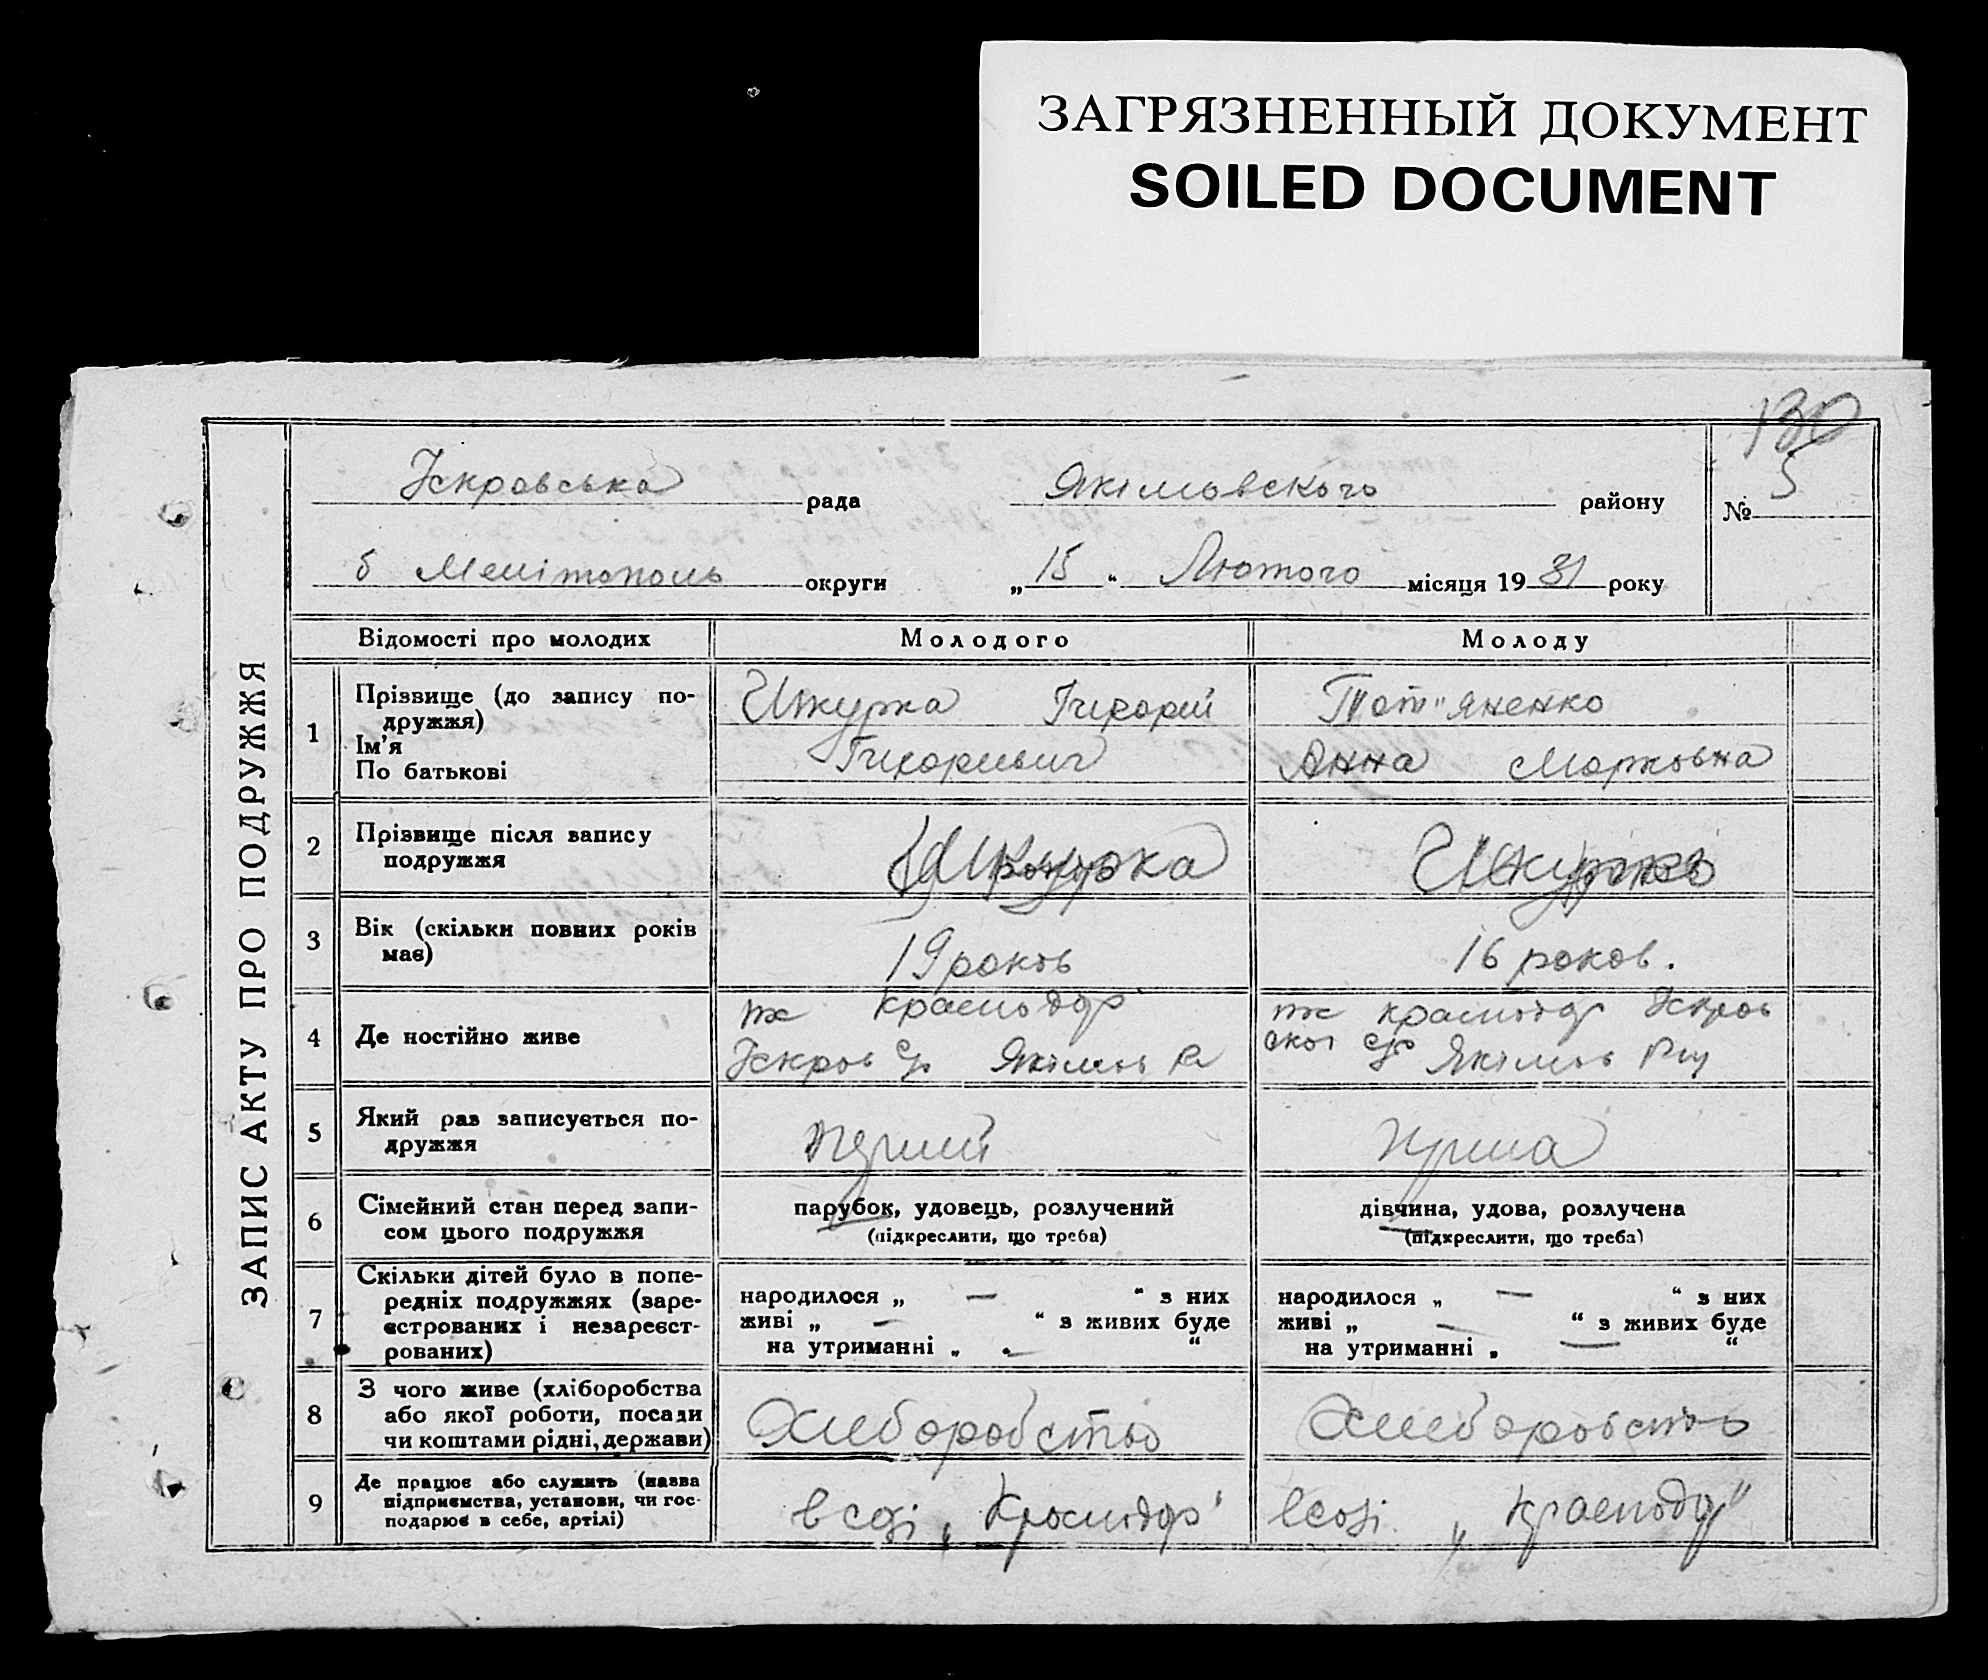 ЗАГРЯЗНЕННЫЙ ДОКУМЕНТ
SOILED DOCUMENT
130
ЗАПИС АКТУ ПРО ПОДРУЖЖЯ
Іскровська рада Якімовского району № 5
б Мелітополь округи „15" Лютого місяця 1931 року
Відомості про молодих Молодого Молоду
1 Прізвище (до запису подружжя)
Ім'я
По батькові
Шкурка Григорий
Григориевич
Тот"яненко
Анна Марковна
2 Прізвище після запису
подружжя
Шкурка
3 Вік (скільки повних років
має)
19 роков
16 роков.
4 Де постійно живе
Іскров Якімов
Якімов
5 Який раз записується по-
дружжя
перший
перша
6 Сімейний стан перед запи-
сом цього подружжя
парубок, удовець, розлучений
(підкреслити, що треба)
дівчина, удова, розлучена
(підкреслити, що треба)
7 Скільки дітей було в попе-
редніх подружжях (заре-
єстрованих і незареєст-
рованих)
народилося „ — " з них
живі „ — " з живих буде
на утриманні „ — "
народилося „ — " з них
живі „ — " з живих буде
на утриманні „ — "
8 З чого живе (хліборобства
або якої роботи, посади
чи коштами рідні, держави)
Хлеборобство
Хлеборобство
9 Де працює або служить (назва
підприємства, установи, чи гос-
подарює в себе, артілі)
в созі „
в созі „